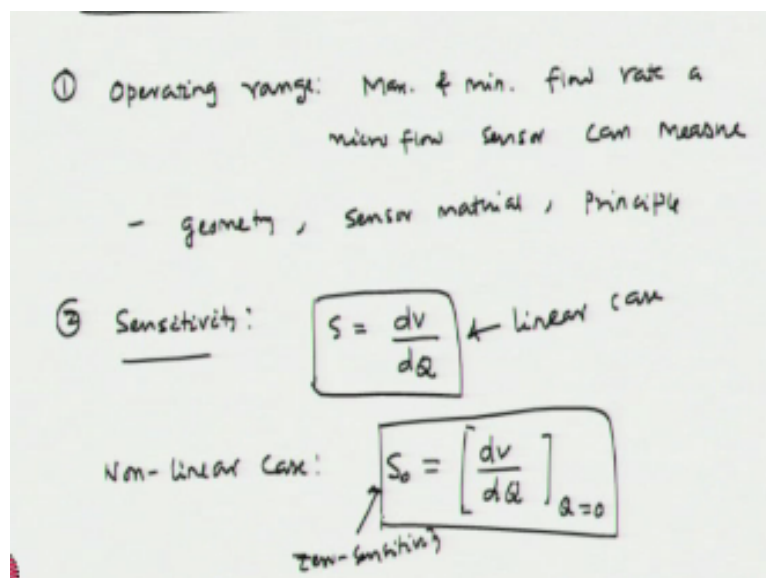 ① Operating range: Max. & min. flow rate a
micro flow sensor can measure
- geometry, sensor material, principle
② Sensitivity: S = dv/dQ ← linear case
Non-linear case: S₀ = [dv/dQ]Q=0
zero-sensitivity